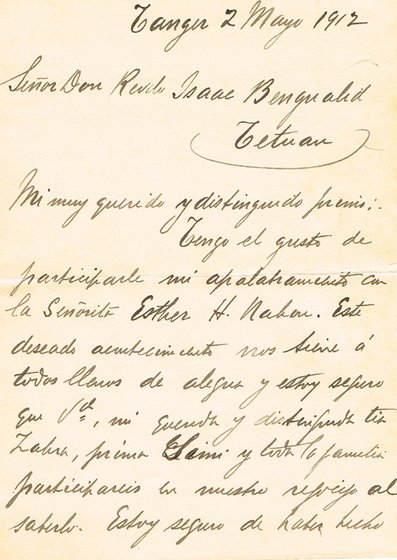 Tanger 2 Mayo 1912
Señor Don Revdo Isaac Bengualid
Tetuan
Mi muy querido y distinguido primo:
Tengo el gusto de
participarle mi apalabramiento con
la Señorita Esther H. Nahon. Este
deseado acontecimiento nos tiene á
todos llenos de alegria y estoy seguro
que Vd., mi querida y distinguida tia
Zahra, prima Simi y toda la familia
participareis en nuestro regocijo al
saberlo. Estoy seguro de haber hecho